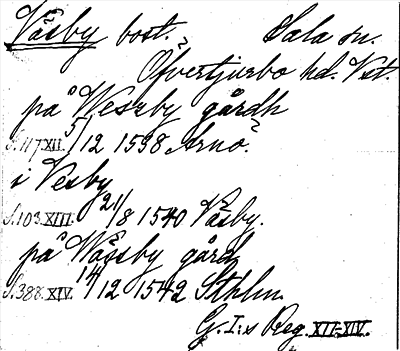 Väsby bost. Sala sn.
Öfvertjurbo hd. Vst.
på Weszby gårdh
S. 117 XII. 5/12 1538 Arnö.
i Vesby
S. 103 XIII. 21/8 1540 Väsby.
på Wässby gård
S. 388. XIV. 14/12 1542 Sthlm.
G. I:s Reg. XII-XIV.